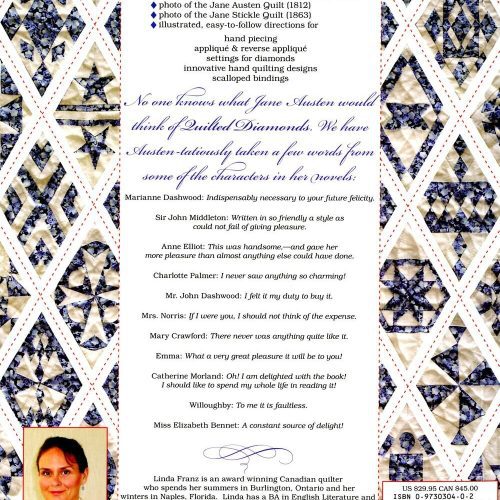 ♦ photo of the Jane Austen Quilt (1812)
♦ photo of the Jane Stickle Quilt (1863)
♦ illustrated, easy-to-follow directions for
hand piecing
appliqué & reverse appliqué
settings for diamonds
innovative hand quilting designs
scalloped bindings
No one knows what Jane Austen would
think of Quilted Diamonds. We have
Austen-tatiously taken a few words from
some of the characters in her novels:
Marianne Dashwood: Indispensably necessary to your future felicity.
Sir John Middleton: Written in so friendly a style as
could not fail of giving pleasure.
Anne Elliot: This was handsome,—and gave her
more pleasure than almost anything else could have done.
Charlotte Palmer: I never saw anything so charming!
Mr. John Dashwood: I felt it my duty to buy it.
Mrs. Norris: If I were you, I should not think of the expense.
Mary Crawford: There never was anything quite like it.
Emma: What a very great pleasure it will be to you!
Catherine Morland: Oh! I am delighted with the book!
I should like to spend my whole life in reading it!
Willoughby: To me it is faultless.
Miss Elizabeth Bennet: A constant source of delight!
Linda Franz is an award winning Canadian quilter
who spends her summers in Burlington, Ontario and her
winters in Naples, Florida. Linda has a BA in English Literature and
US $29.95 CAN $45.00
ISBN 0-9730304-0-2